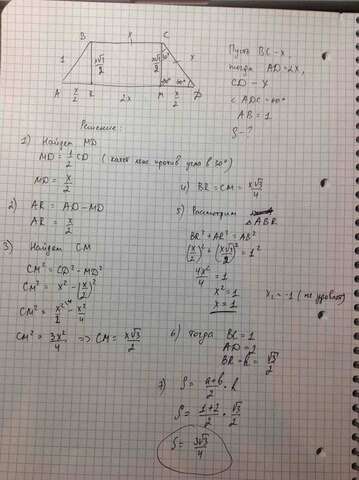 B x C
1 x√3/2 x√3/2 30° x
60°
A x/2 R 2x M x/2 D
Пусть BC - x
тогда AD = 2x,
CD - x
∠ ADC = 60°
AB = 1
S - ?
Решение:
1) Найдем MD
MD = 1/2 CD ( катет леж. против угла в 30°)
MD = x/2
2) AR = AD - MD
AR = x/2
3) Найдем CM
CM² = CD² - MD²
CM² = x² - (x/2)²
CM² = x²/1 - x²/4
CM² = 3x²/4 => CM = x√3/2
4) BR = CM = x√3/4
5) Рассмотрим
△ABR
BR² + AR² = AB²
(x/2)² + (x√3/2)² = 1²
4x²/4 = 1
x² = 1
x = 1
x₂ = -1 ( не удовлет)
6) Тогда BC = 1
AD = 2
BR - h = √3/2
7) S = a+b/2 · h
S = 1+2/2 · √3/2
S = 3√3/4